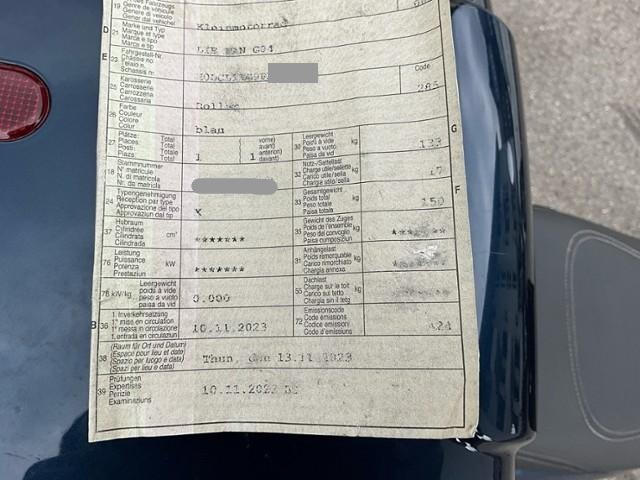 19 Genre de véhicule
Genere di veicolo
Gener dal vehichel
Kleinmotorrad
D 21 Marke und Typ
Marque et type
Marca e tipo
Marca e tip
E 23 Fahrgestell-Nr.
Châssis no
Telaio n.
Schassis nr.
25 Karosserie
Carrosserie
Carrozzeria
Carossaria
Code
285
26 Farbe
Couleur
Colore
Colur
blau
27 Plätze: Total vorne)
Places: Total avant)
Posti: Totale anteriori)
Plazs: Total davant)
1 1
30 Leergewicht
Poids à vide
Peso a vuoto
Paisa da vid
kg 133 G
18 Stammnummer
N° matricule
N. di matricola
Nr. da matricla
32 Nutz-/Sattellast
Charge utile/sellette
Carico utile/sella
Chargia utila/sella
kg 17
24 Typengenehmigung
Réception par type
Approvazione del tipo
Approvaziun dal tip
X
33 Gesamtgewicht
Poids total
Peso totale
Paisa totala
kg 150 F
37 Hubraum
Cylindrée
Cilindrata
Cilindrada
cm³ *******
35 Gewicht des Zuges
Poids de l'ensemble
Peso del convoglio
Paisa cumposiziun
kg
76 Leistung
Puissance
Potenza
Prestaziun
kW *******
31 Anhängelast
Poids remorquable
Carico rimorchiato
Chargia annexa
kg
78 kW/kg Leergewicht
poids à vide
peso a vuoto
paisa da vid
0.000
55 Dachlast
Charge sur le toit
Carico sul tetto
Chargia sin il tetg
kg
B 36 1. Inverkehrsetzung
1re mise en circulation
1a messa in circolazione
1. entrada en circulaziun
10.11.2023
72 Emissionscode
Code émissions
Codice emissioni
Code d'emissiuns
A24
38 (Raum für Ort und Datum)
(Espace pour lieu et date)
(Spazio per luogo e data)
(Spazi per lieu e data)
Thun, den 13.11.2023
39 Prüfungen
Expertises
Perizie
Examinaziuns
10.11.2023 BE